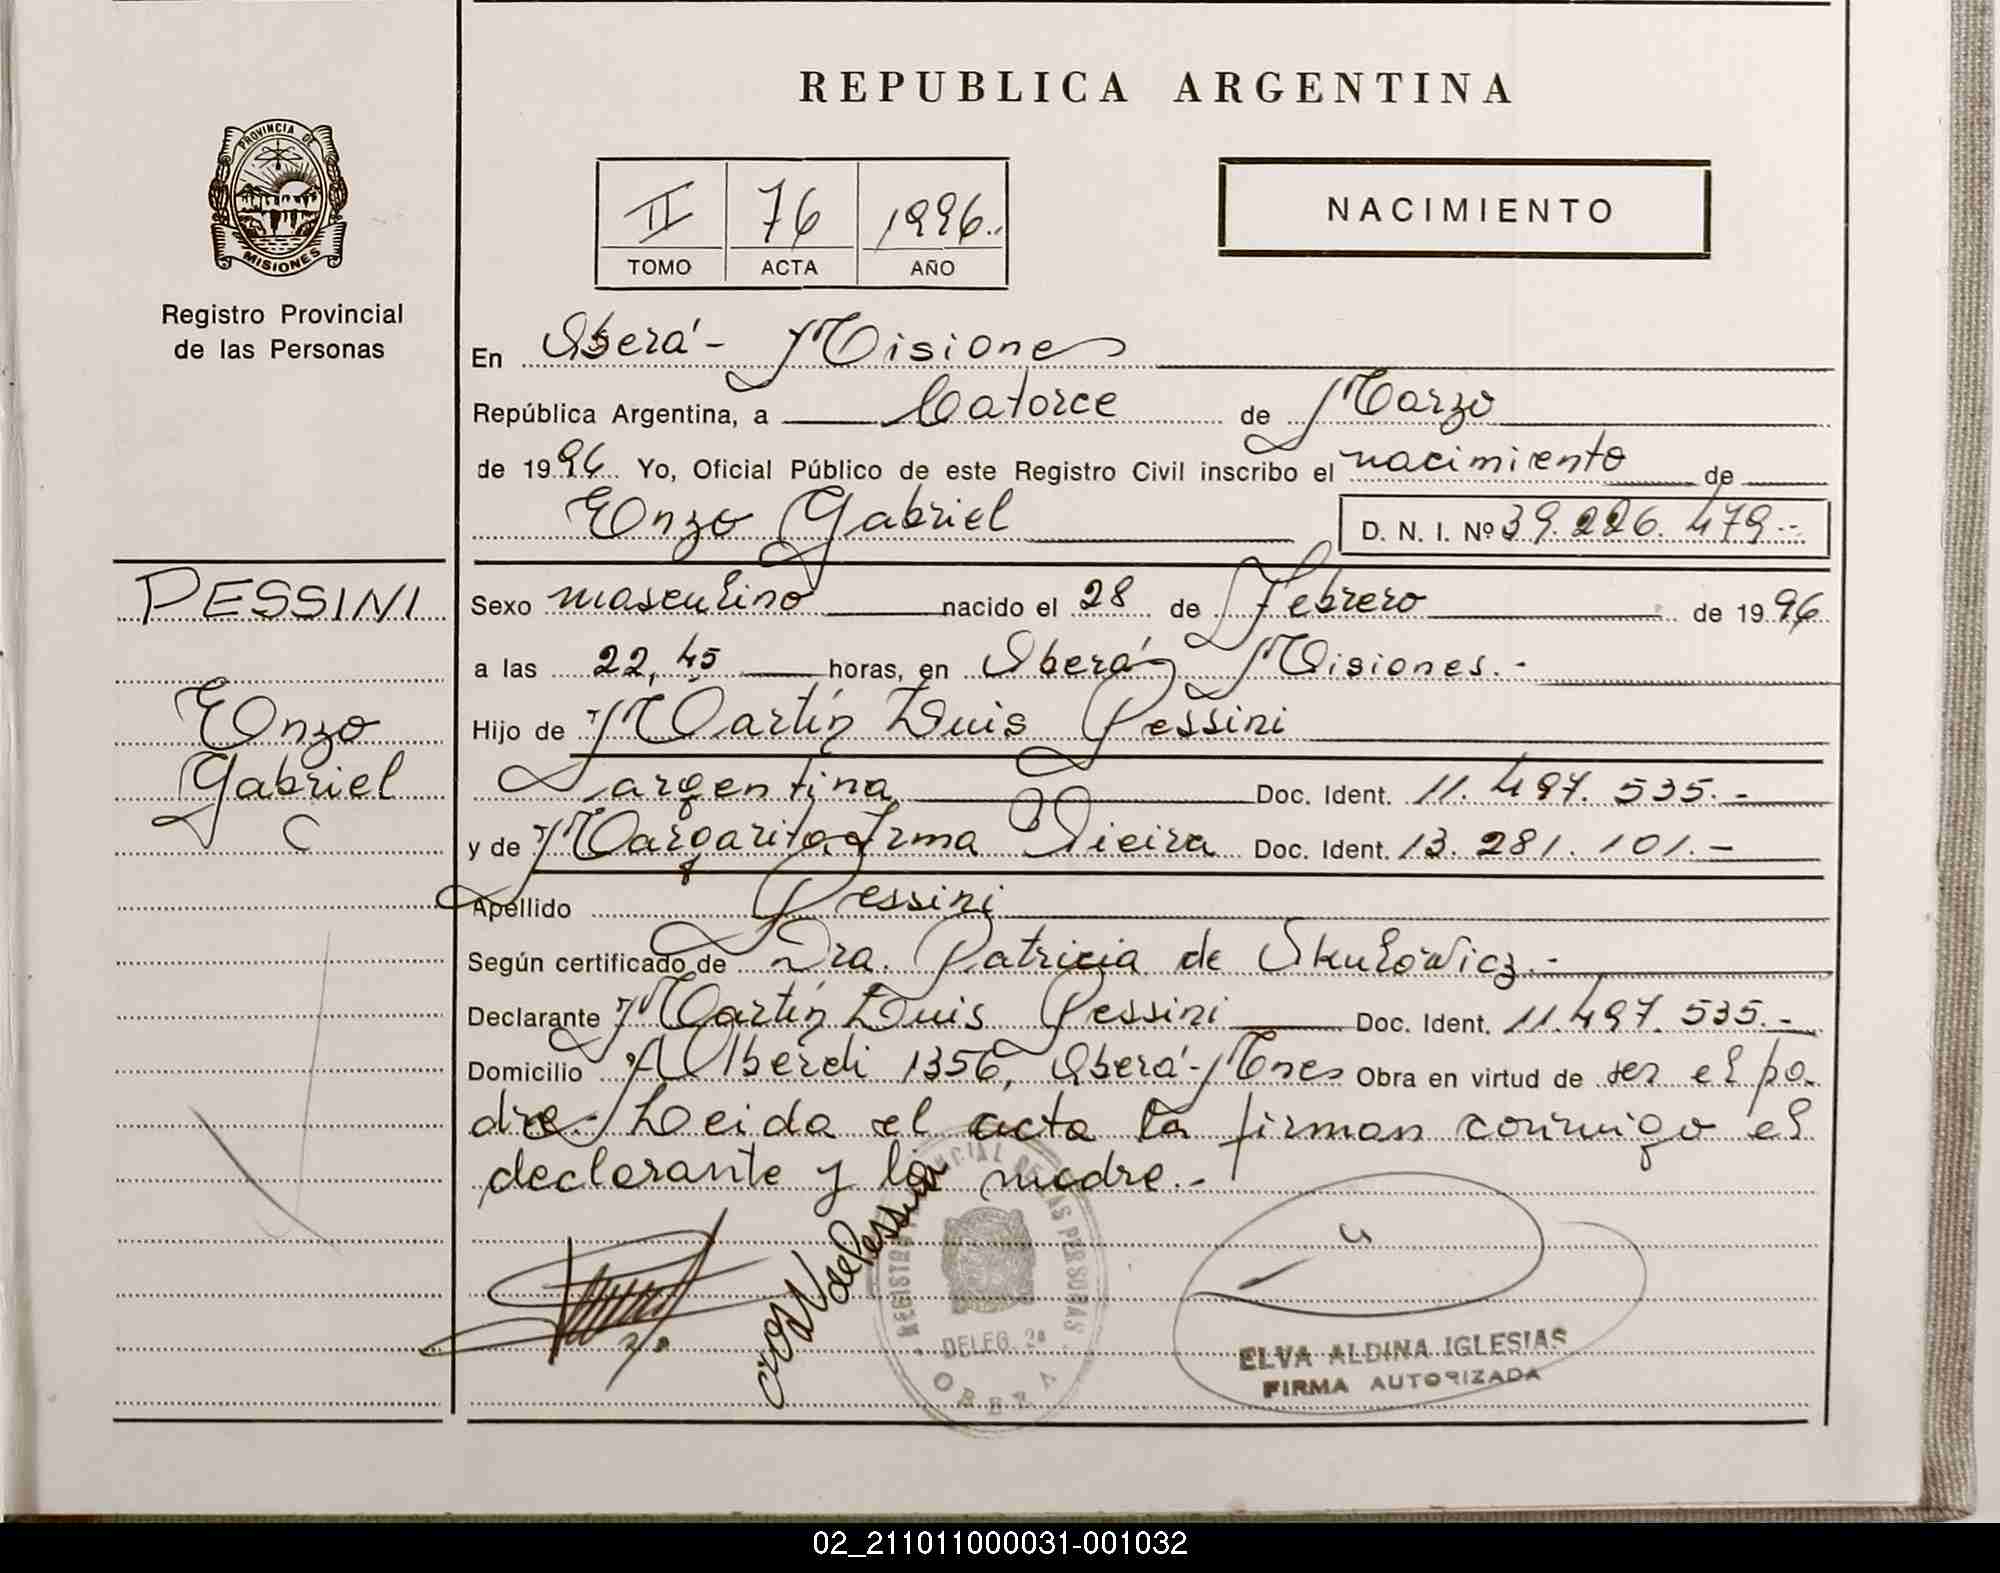 REPUBLICA ARGENTINA
PROVINCIA DE
MISIONES
Registro Provincial
de las Personas
II 76 1996..
TOMO ACTA AÑO
NACIMIENTO
En Oberá - Misiones
República Argentina, a Catorce de Marzo
de 1996 Yo, Oficial Público de este Registro Civil inscribo el nacimiento de
Enzo Gabriel D. N. I. Nº 39.226.479.-
PESSINI
Enzo
Gabriel
Sexo masculino nacido el 28 de Febrero de 1996
a las 22,45 horas, en Oberá, Misiones.-
Hijo de Martín Luis Pessini
argentina Doc. Ident. 11.497.535.-
y de Margarita Irma Vieira Doc. Ident. 13.281.101.-
Apellido Pessini
Según certificado de Dra. Patricia de Skulowicz.-
Declarante Martín Luis Pessini Doc. Ident. 11.497.535.-
Domicilio Alberdi 1356, Oberá - Mnes Obra en virtud de ser el pa-
dre.- Leida el acta la firman conmigo el
declarante y la madre.-
de Pessini
REGISTRO PROVINCIAL DE LAS PERSONAS
DELEG. 2a
OBERA
ELVA ALDINA IGLESIAS
FIRMA AUTORIZADA
02_211011000031-001032